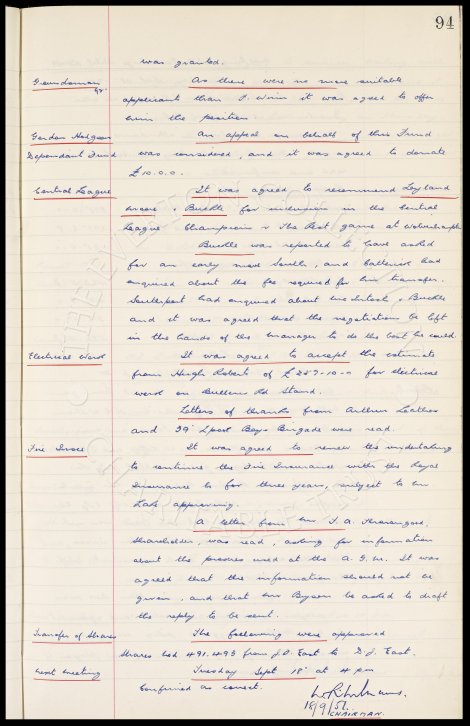 94
was granted.
Groundsman As there were no more suitable
applicant than it was agreed to offer
him the position.
Gordon Hodgson An appeal on behalf of this Fund
Dependant Fund was considered, and it was agreed to donate
£10.0.0.
Central League It was agreed to recommend Leyland
& Buckle for inclusion in the Central
League Champions v The Rest game at Wolverhampton
Buckle was reported to have asked
for an early move South, and had
enquired about the fee required for his transfer.
Southport had enquired about McIntosh & Buckle
and it was agreed that the negotiations be left
in the hands of the manager to do the best he could.
Electrical Work It was agreed to accept the estimate
from Hugh Roberts of £257-10-0 for electrical
work on Bullens Rd Stand.
Letters of thanks from Arthur
and 39 L'pool Boys Brigade were read.
Fire Insce It was agreed to renew the undertaking
to continue the Fire Insurance with the Royal
Insurance Co for three years, subject to Mr
approving.
A letter from Mr T. A.
shareholder, was read, asking for information
about the proxies used at the A.G.M. It was
agreed that the information should not be
given, and that Mr be asked to draft
the reply to be sent.
Transfer of Shares The following were approved
Shares Nod 491.493 from J.D. East to D.J. East.
Next meeting Tuesday Sept 18 at 4 pm
Confirmed as correct.
18/9/51.
CHAIRMAN.